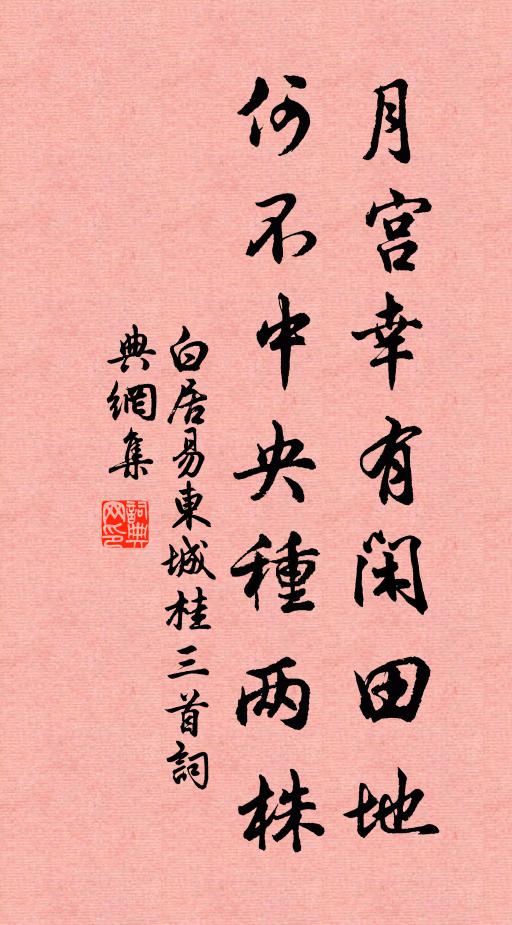 月宮幸有閑田地
何不中央種两株
白居易東城桂三首詞
典網集
詞典
网印